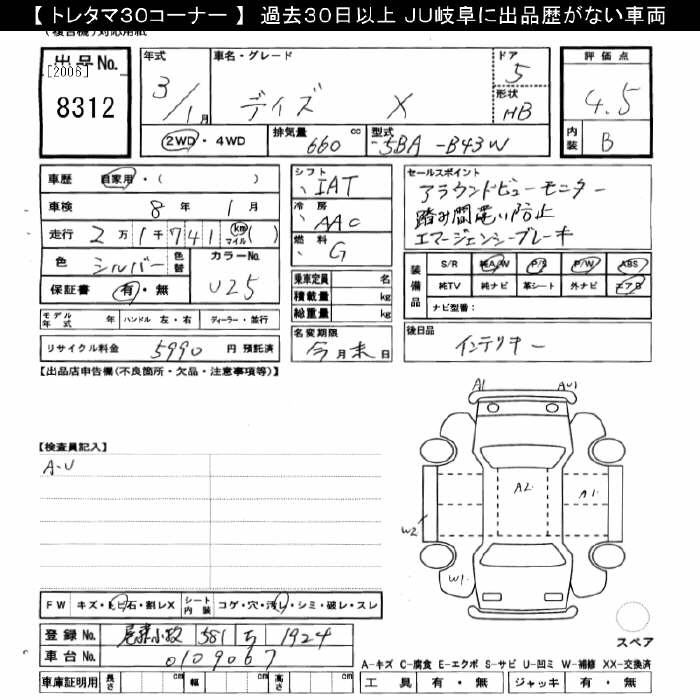 【トレタマ30コーナー】 過去30日以上 JU岐阜に出品歴がない車両
(複合機)対応用紙
出品No.
[2006]
8312
年式 3/1月
車名・グレード
デイズ X
ドア 5
形状 HB
2WD・4WD
排気量 660 cc
型式 5BA-B43W
評価点 4.5
内装 B
車歴 自家用・( )
車検 8年 1月
走行 2万1千741 (km マイル)
色 シルバー 色替
カラーNo. U25
保証書 有・無
モデル年式 年 ハンドル 左・右 ディーラー・並行
リサイクル料金 5990 円 預託済
シフト IAT
冷房 AAC
燃料 G
乗車定員 名
積載量 kg
総重量 kg
名変期限 今月末日
セールスポイント
アラウンドビューモニター
踏み間違い防止
エマージェンシーブレーキ
装備品
S/R 純A/W P/S P/W ABS
純TV 純ナビ 革シート 外ナビ エアB
ナビ型番:
後日品
インテリキー
【出品店申告欄(不良箇所・欠品・注意事項等)】
【検査員記入】
A-U
A1 AU1
A2
A1
W2
W1
FW キズ・トビ石・割レX シート内装 コゲ・穴・汚レ・シミ・破レ・スレ
登録No. 581 ち 1924
車台No. 0109067
車庫証明用 長さ cm 幅 cm 高さ cm
スペア
A-キズ C-腐食 E-エクボ S-サビ U-凹ミ W-補修 XX-交換済
工具 有・無 ジャッキ 有・無